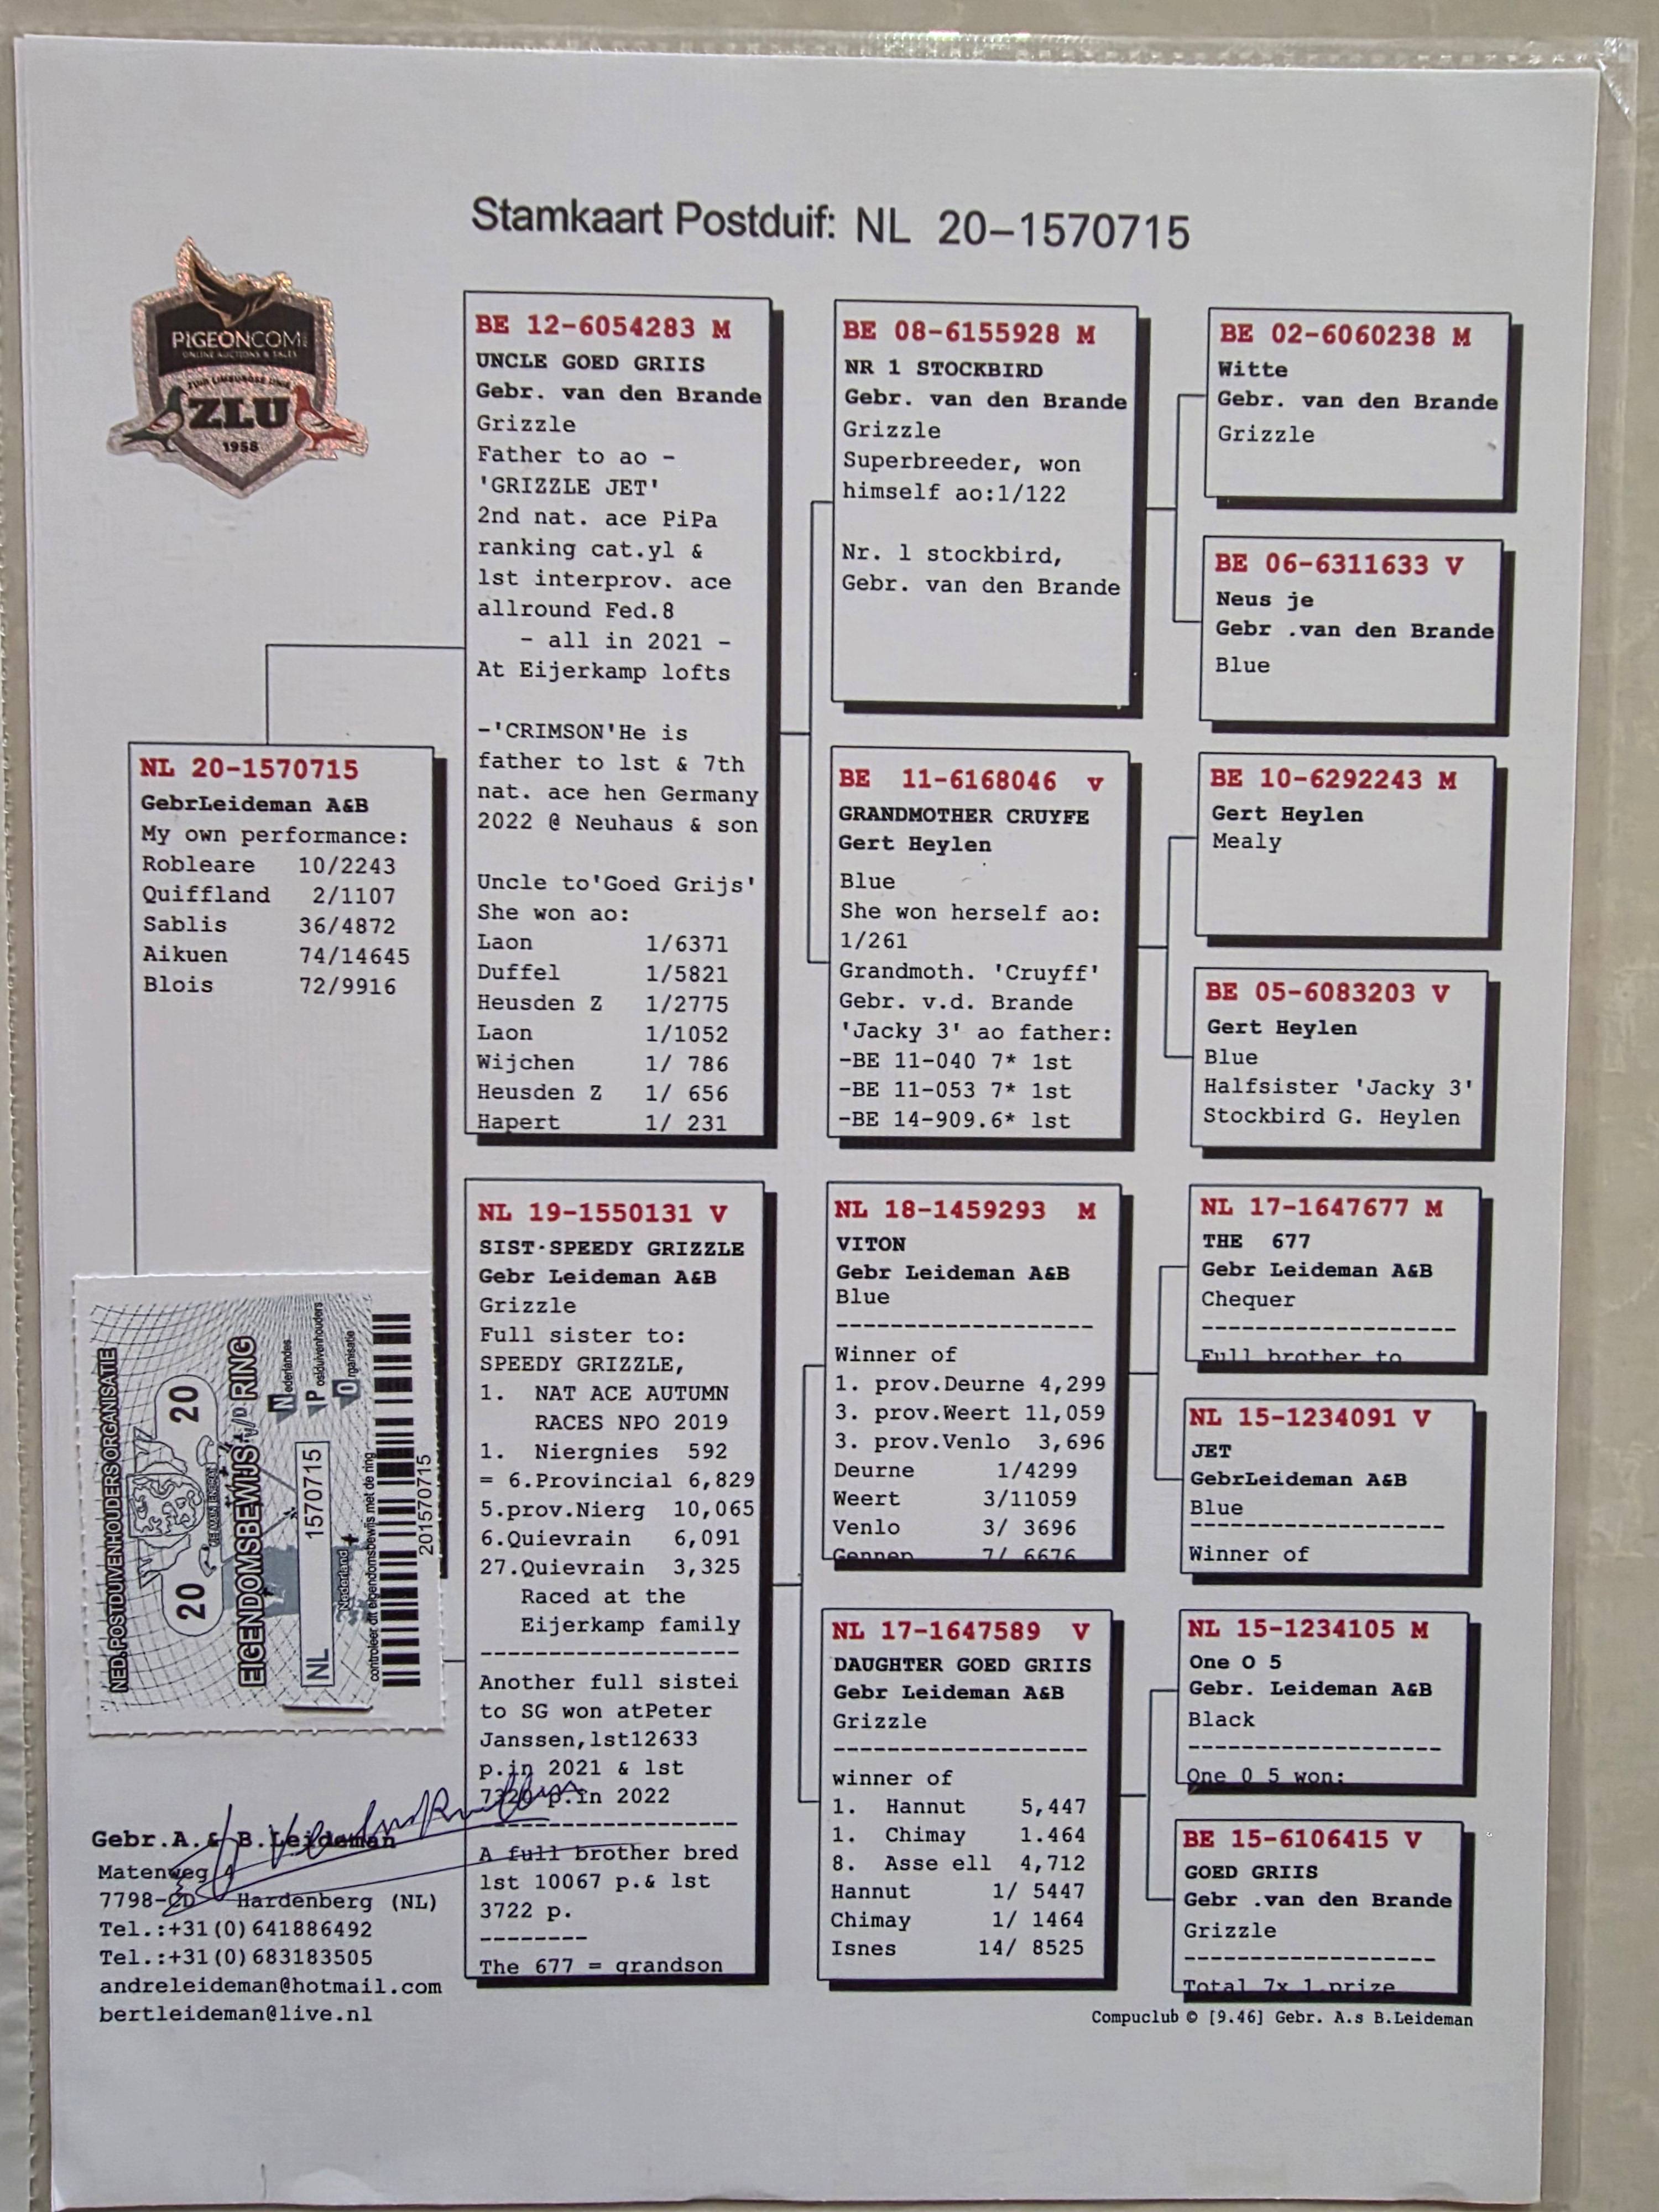 Stamkaart Postduif: NL 20-1570715
PIGEONCOM
ONLINE AUCTIONS & SALES
ZUID LIMBURGSE UNIE
ZLU
1958
NL 20-1570715
GebrLeideman A&B
My own performance:
Robleare 10/2243
Quiffland 2/1107
Sablis 36/4872
Aikuen 74/14645
Blois 72/9916
BE 12-6054283 M
UNCLE GOED GRIIS
Gebr. van den Brande
Grizzle
Father to ao -
'GRIZZLE JET'
2nd nat. ace PiPa
ranking cat.yl &
1st interprov. ace
allround Fed.8
- all in 2021 -
At Eijerkamp lofts
-'CRIMSON'He is
father to 1st & 7th
nat. ace hen Germany
2022 @ Neuhaus & son
Uncle to'Goed Grijs'
She won ao:
Laon 1/6371
Duffel 1/5821
Heusden Z 1/2775
Laon 1/1052
Wijchen 1/ 786
Heusden Z 1/ 656
Hapert 1/ 231
NL 19-1550131 V
SIST·SPEEDY GRIZZLE
Gebr Leideman A&B
Grizzle
Full sister to:
SPEEDY GRIZZLE,
1. NAT ACE AUTUMN
RACES NPO 2019
1. Niergnies 592
= 6.Provincial 6,829
5.prov.Nierg 10,065
6.Quievrain 6,091
27.Quievrain 3,325
Raced at the
Eijerkamp family
--------------------
Another full sistei
to SG won atPeter
Janssen,1st12633
p.in 2021 & 1st
p.in 2022
--------------------
A full brother bred
1st 10067 p.& 1st
3722 p.
--------
The 677 = grandson
BE 08-6155928 M
NR 1 STOCKBIRD
Gebr. van den Brande
Grizzle
Superbreeder, won
himself ao:1/122
Nr. 1 stockbird,
Gebr. van den Brande
BE 11-6168046 v
GRANDMOTHER CRUYFE
Gert Heylen
Blue
She won herself ao:
1/261
Grandmoth. 'Cruyff'
Gebr. v.d. Brande
'Jacky 3' ao father:
-BE 11-040 7* 1st
-BE 11-053 7* 1st
-BE 14-909.6* 1st
NL 18-1459293 M
VITON
Gebr Leideman A&B
Blue
--------------------
Winner of
1. prov.Deurne 4,299
3. prov.Weert 11,059
3. prov.Venlo 3,696
Deurne 1/4299
Weert 3/11059
Venlo 3/ 3696
Gennep 7/ 6676
NL 17-1647589 V
DAUGHTER GOED GRIIS
Gebr Leideman A&B
Grizzle
--------------------
winner of
1. Hannut 5,447
1. Chimay 1.464
8. Asse ell 4,712
Hannut 1/ 5447
Chimay 1/ 1464
Isnes 14/ 8525
BE 02-6060238 M
Witte
Gebr. van den Brande
Grizzle
BE 06-6311633 V
Neus je
Gebr .van den Brande
Blue
BE 10-6292243 M
Gert Heylen
Mealy
BE 05-6083203 V
Gert Heylen
Blue
Halfsister 'Jacky 3'
Stockbird G. Heylen
NL 17-1647677 M
THE 677
Gebr Leideman A&B
Chequer
--------------------
Full brother to
NL 15-1234091 V
JET
GebrLeideman A&B
Blue
--------------------
Winner of
NL 15-1234105 M
One O 5
Gebr. Leideman A&B
Black
--------------------
One 0 5 won:
BE 15-6106415 V
GOED GRIIS
Gebr .van den Brande
Grizzle
--------------------
Total 7x 1.prize
NED.POSTDUIVENHOUDERSORGANISATIE
20 20
EIGENDOMSBEWIJS V/D RING
NL 1570715
Nederlandes
Postduivenhouders
Organisatie
Nederland
controleer dit eigendomsbewijs met de ring
201570715
Gebr.A.& B.Leideman
Matenweg 4
7798-CD Hardenberg (NL)
Tel.:+31(0)641886492
Tel.:+31(0)683183505
andreleideman@hotmail.com
bertleideman@live.nl
Compuclub © [9.46] Gebr. A.s B.Leideman